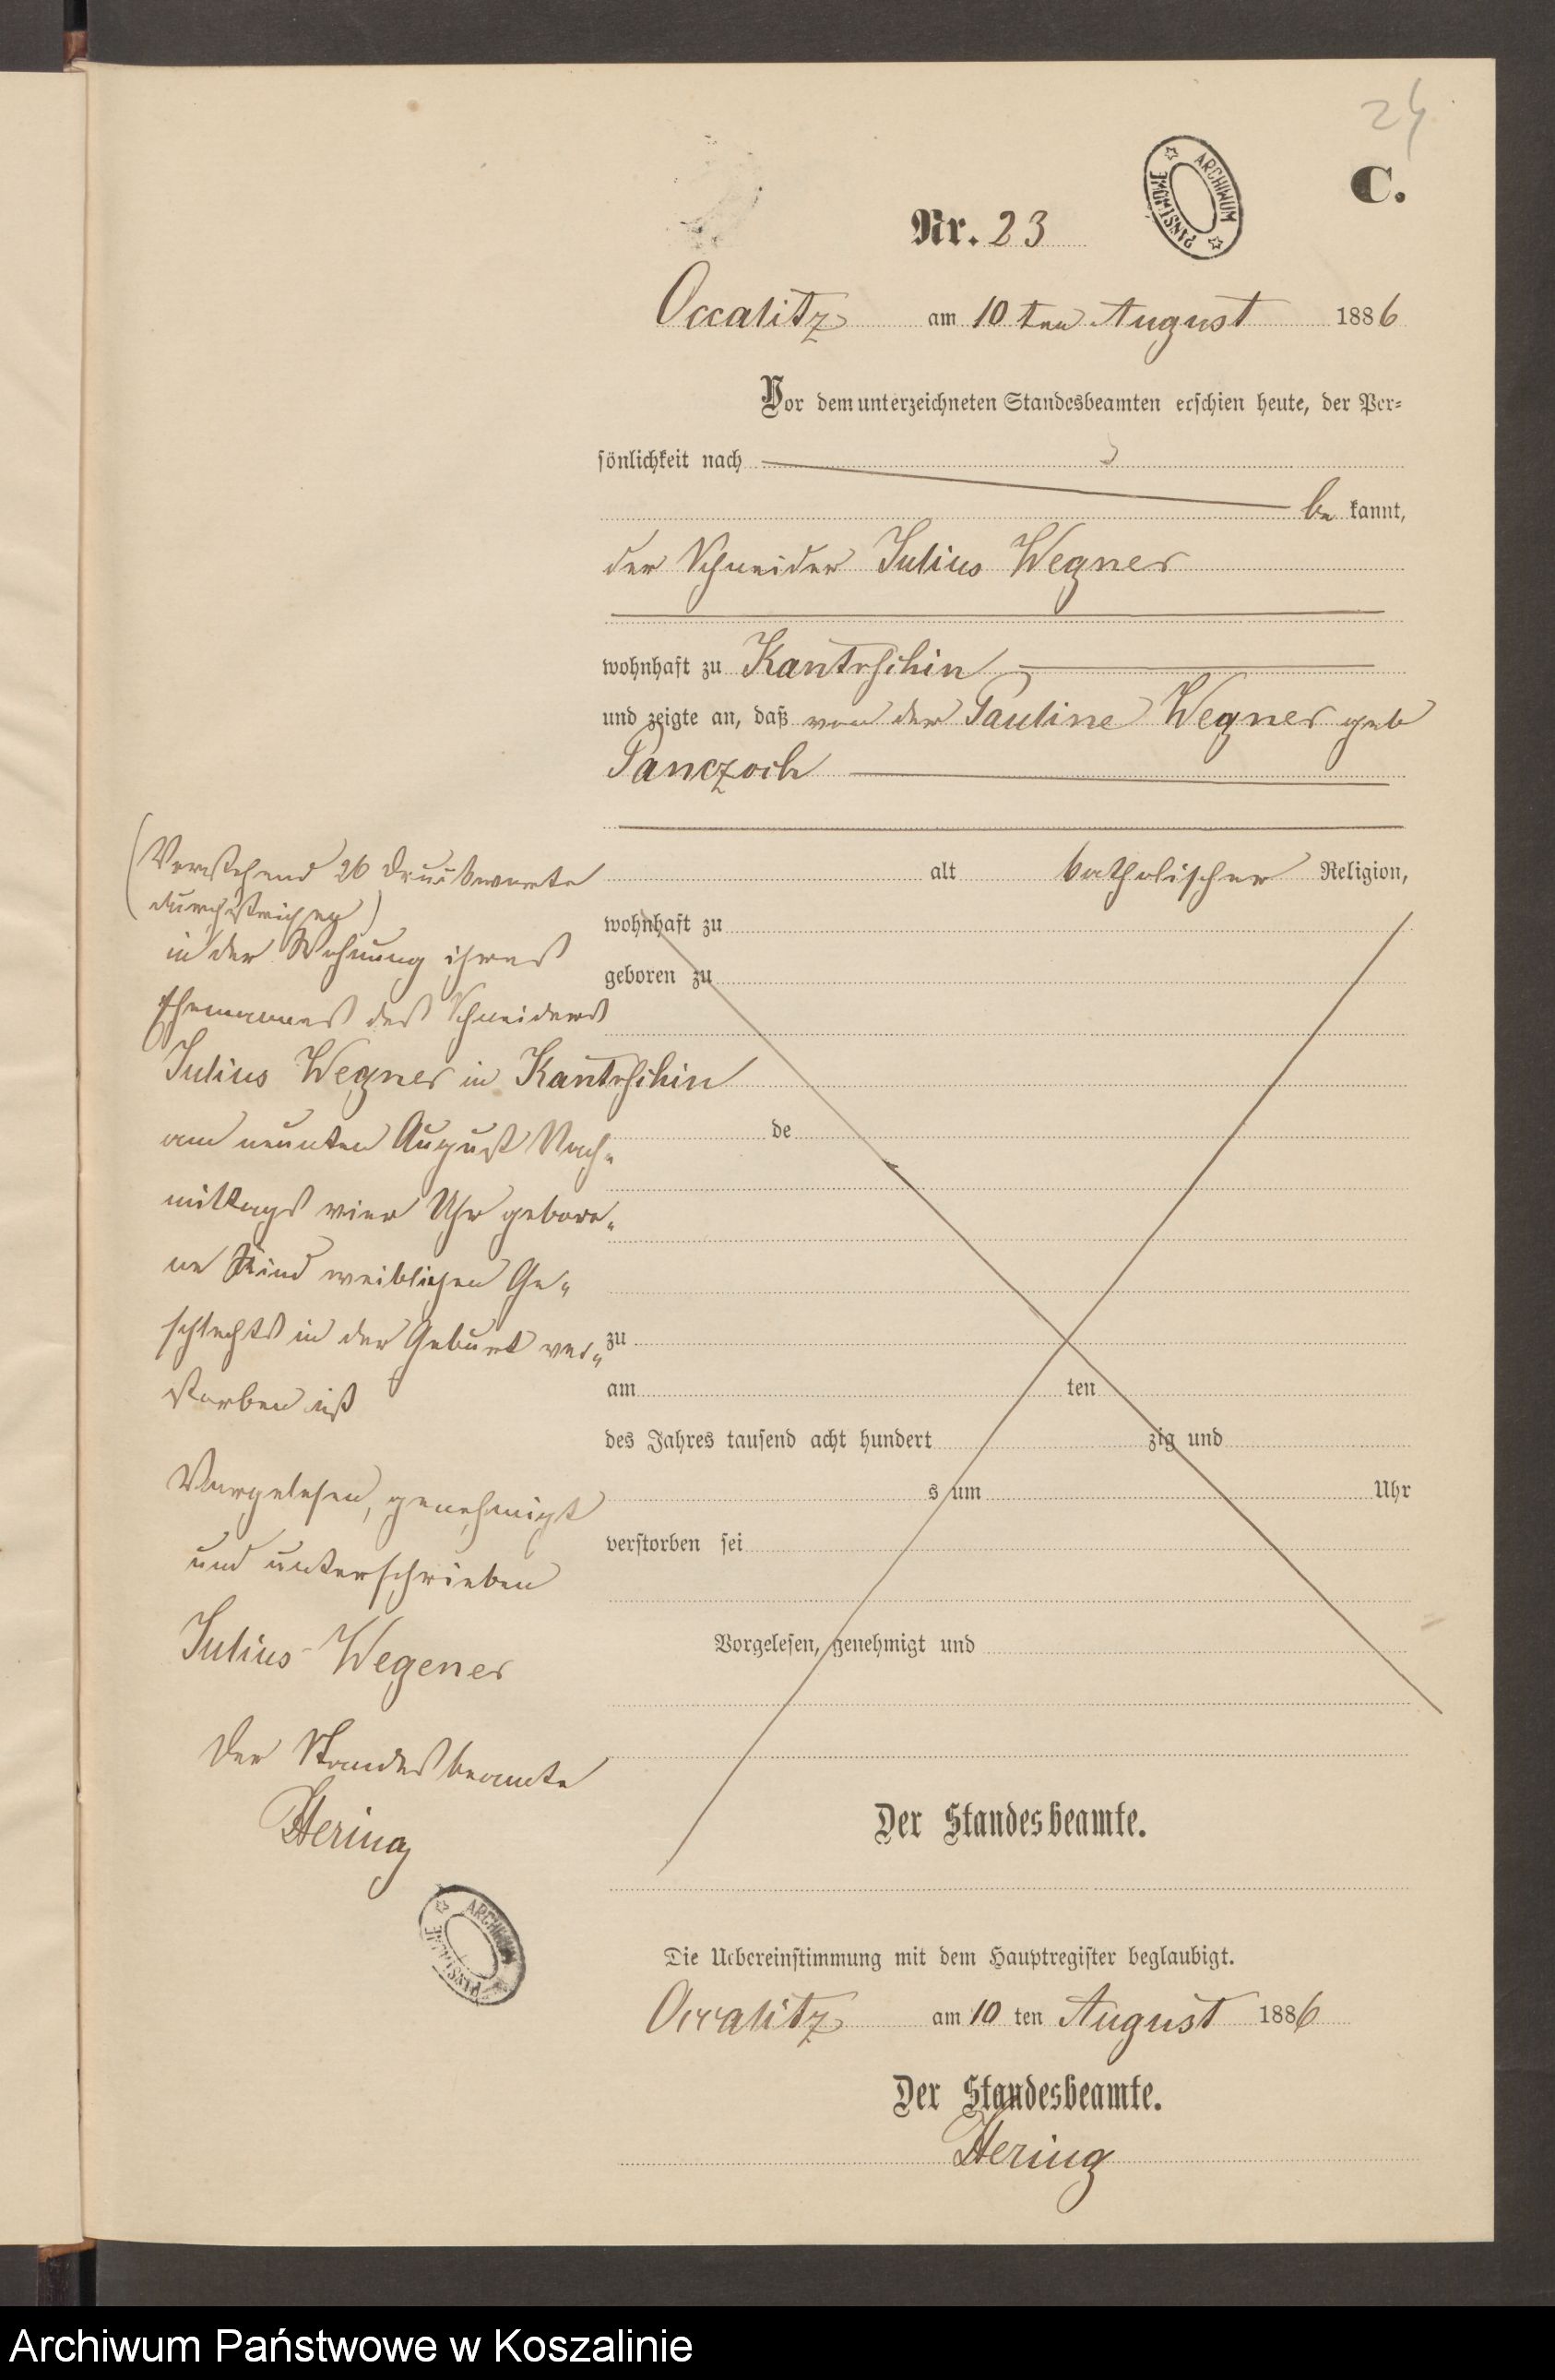 24
C.
ARCHIWUM PAŃSTWOWE
Nr. 23
Occalitz am 10 ten August 1886
Vor dem unterzeichneten Standesbeamten erschien heute, der Per-
sönlichkeit nach
be kannt,
der Schneider Julius Wegner
wohnhaft zu Kantrschin
und zeigte an, daß von der Pauline Wegner geb
Panczoch
alt katholischer Religion,
wohnhaft zu
geboren zu
de
zu
am ten
des Jahres tausend acht hundert zig und
s um Uhr
verstorben sei
Vorgelesen, genehmigt und
Der Standesbeamte.
(Vorstehend 26 Druckworte
durchstrichen)
in der Wohnung ihres
Ehemannes des Schneiders
Julius Wegner in Kantrschin
am neunten August Nach-
mittags vier Uhr gebore-
ne Kind weiblichen Ge-
schlechts in der Geburt ver-
storben ist
Vorgelesen, genehmigt
und unterschrieben
Julius Wegener
Der Standesbeamte
Hering
ARCHIWUM PAŃSTWOWE
Die Uebereinstimmung mit dem Hauptregister beglaubigt.
Occalitz am 10 ten August 1886
Der Standesbeamte.
Hering
Archiwum Państwowe w Koszalinie